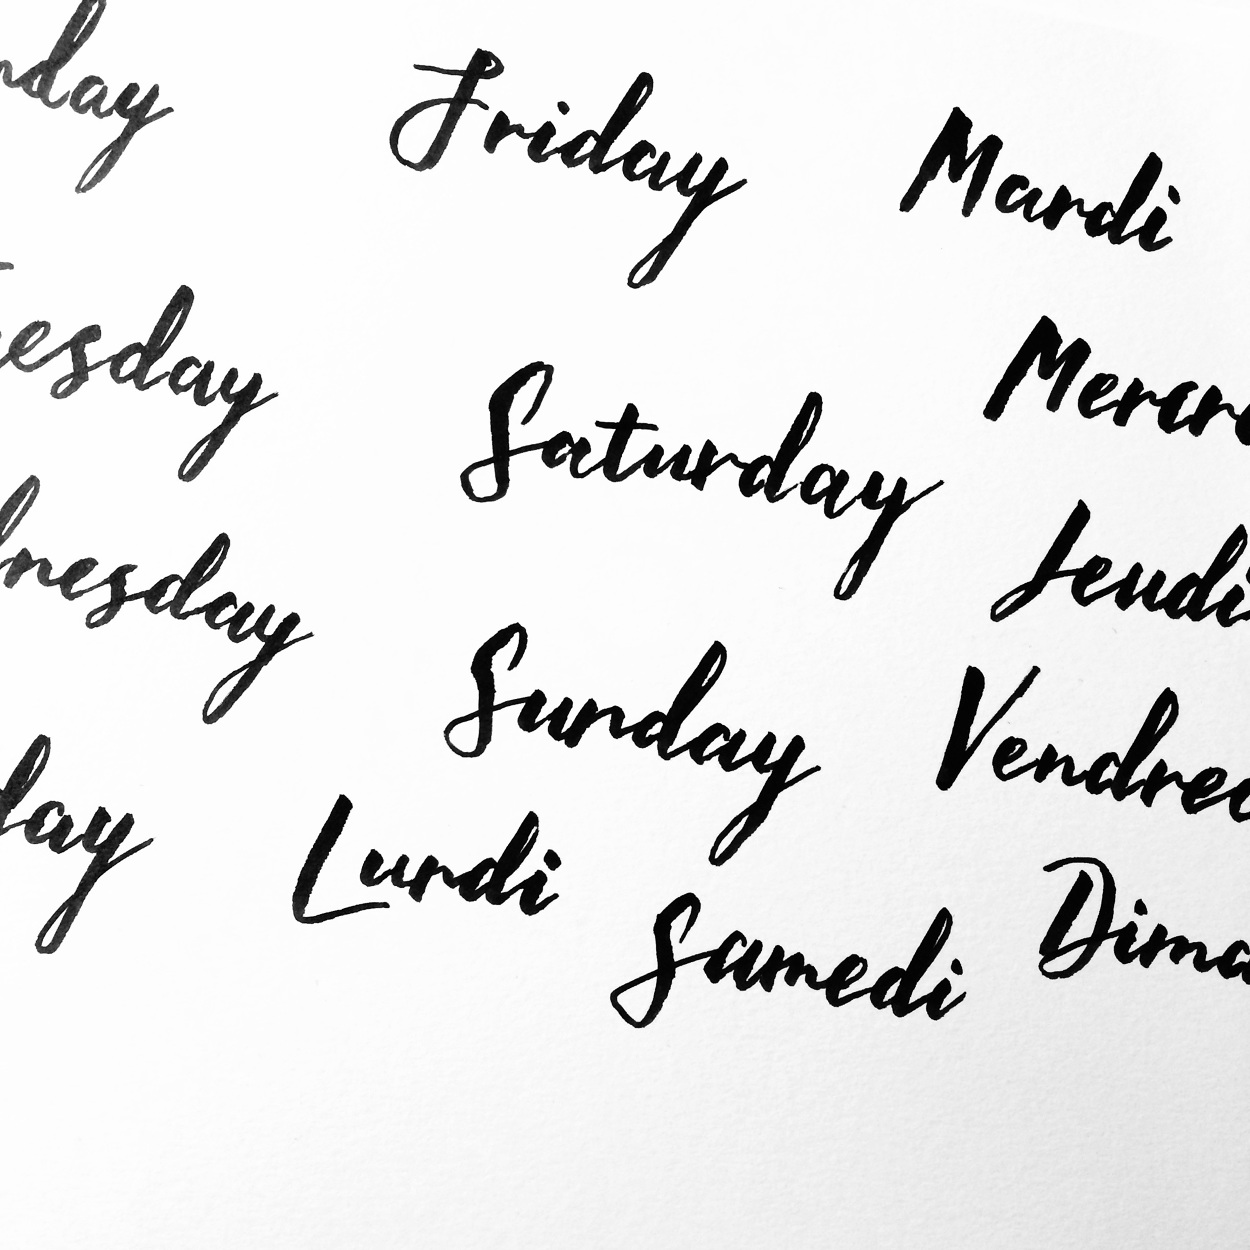 nday
uesday
dnesday
day
Friday
Saturday
Sunday
Lundi
Mardi
Mercre
Jeudi
Vendred
Samedi
Dima